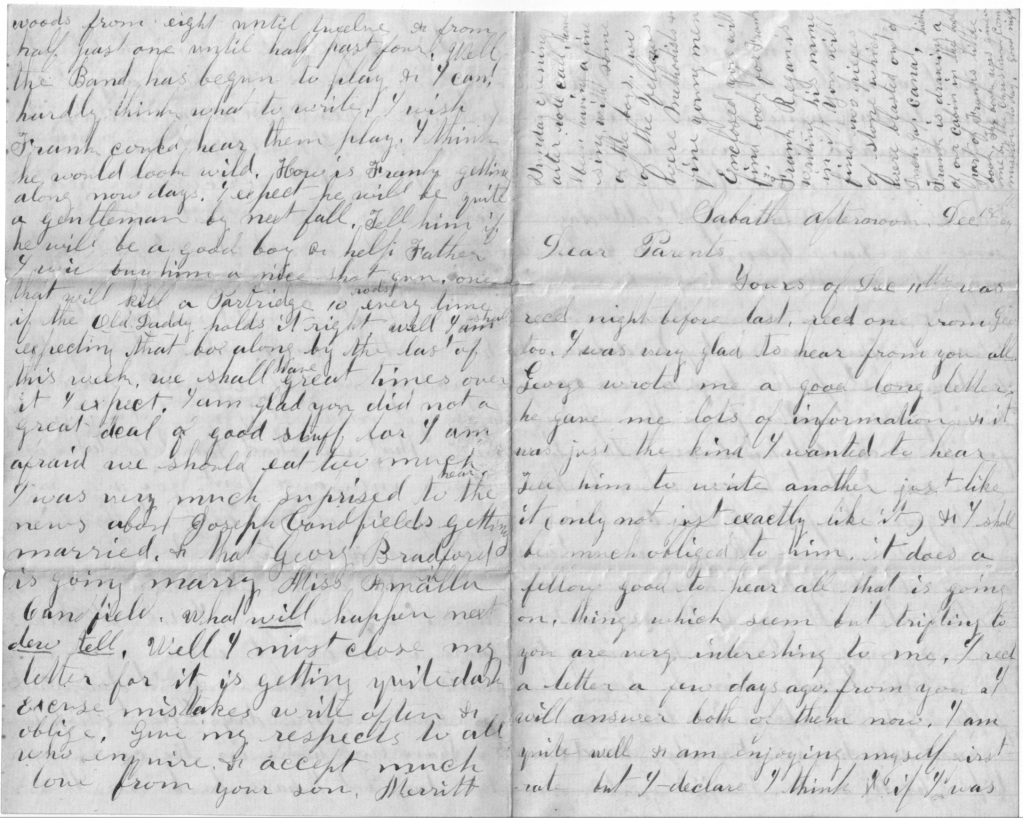 Sabath afternoon. Dec
Dear Parents
Yours of Dec 11th was
recd night before last, recd one from Geo
too. I was very glad to hear from you all
George wrote me a good long letter,
he gave me lots of information & it
was just the kind I wanted to hear
Tell him to write another just like
it (only not just exactly like it) & I shall
be much obliged to him. it does a
fellow good to hear all that is going
on, things which seem but trifling to
you are very interesting to me. I recd
a letter a few days ago from you & I
will answer both of them now. I am
quite well & am enjoying myself first
rate but I declare I think & if I was
woods from eight until twelve & from
half past one until half past four. Well
the Band has begun to play & I can
hardly think what to write. I wish
Frank could hear them play. I think
he would look wild. How is Franky getting
along now days. I expect he will be quite
a gentleman by next fall. Tell him if
he will be a good boy & help Father
I will buy him a nice shot gun, one
that will kill a Partridge 10 rods every time
if the Old Daddy holds it right well I am
expecting that box along by the last of
this week. we shall have great times over
it I expect. I am glad you did not a
great deal of good stuff for I am
afraid we should eat too much
I was very much suprised to hear the
news about Joseph Candfields getting
married. & that George Bradford
is going marry Miss
Canfield. What will happen next
dew tell. Well I must close my
letter for it is getting quite dark
Excuse mistakes write often &
oblige. Give my respects to all
who enquire & accept much
love from your son. Merritt
Sunday evening
after roll call,
I have been having a fine
sing with some
of the boys. two
of the fellows
were Methodists
fine young men
Enclosed you will
find book for Frank
Frank Regards
working his mine
yet. You will
find two pieces
of stone which
were blasted out of
Frank is drawing a
of our cabin in the